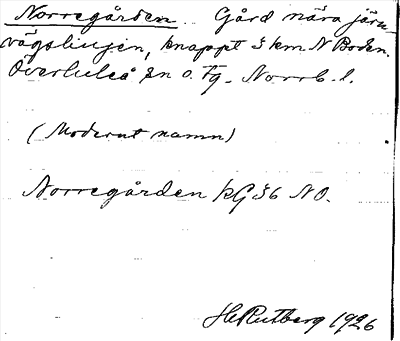 Norregården. Gård nära järn-
vägslinjen, knappt 3 km N Boden.
Överluleå sn o. tg. Norrb. l.
(Modernt namn)
Norregården kG 36 NO.
H Rutberg 1926